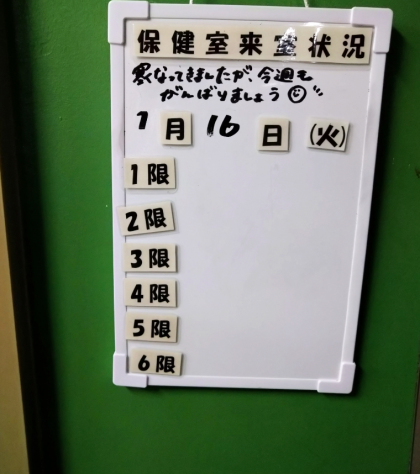 保健室来室状況
寒くなってきましたが、今週も
がんばりましょう
1月16日(火)
1限
2限
3限
4限
5限
6限